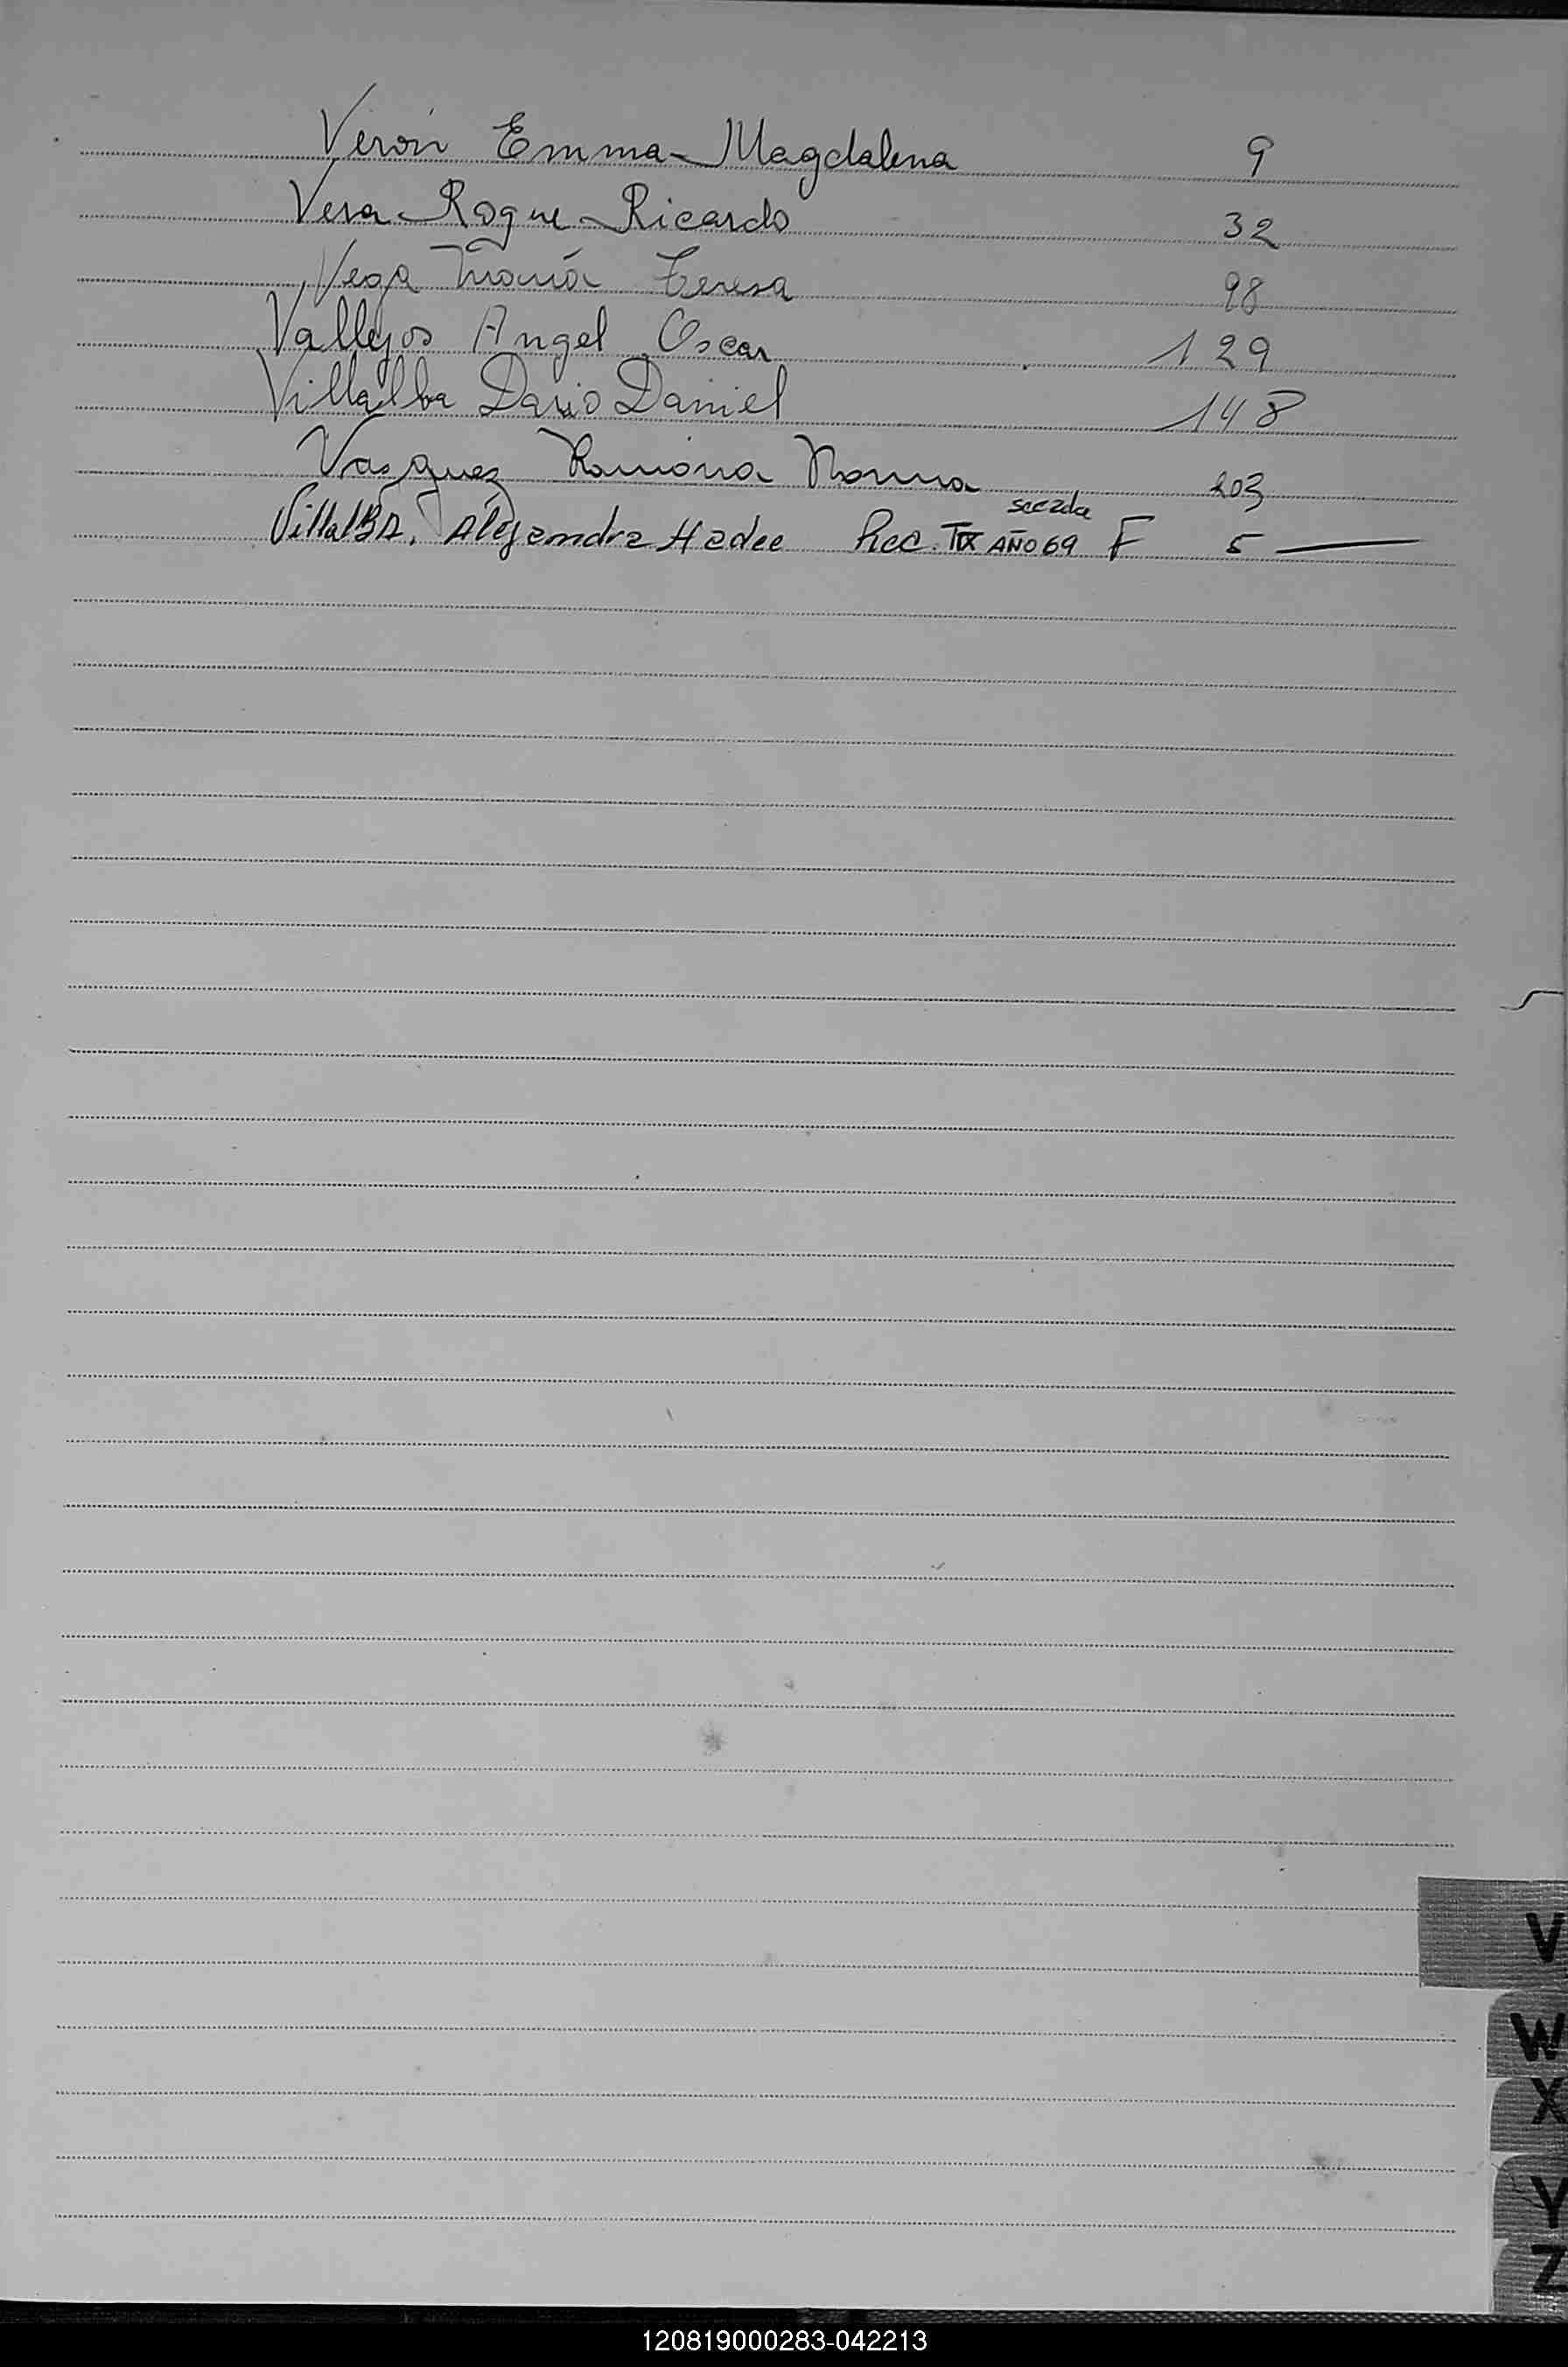 Verón Emma Magdalena 9
Vera Roque Ricardo 32
Vega María Teresa 98
Vallejos Angel Oscar 129
Villalba Dario Daniel 148
Vasquez Ramona Norma 203
VillalBA. Alejandra Hadee Rec. AÑO 69 F 5
V
W
X
Y
Z
120819000283-042213